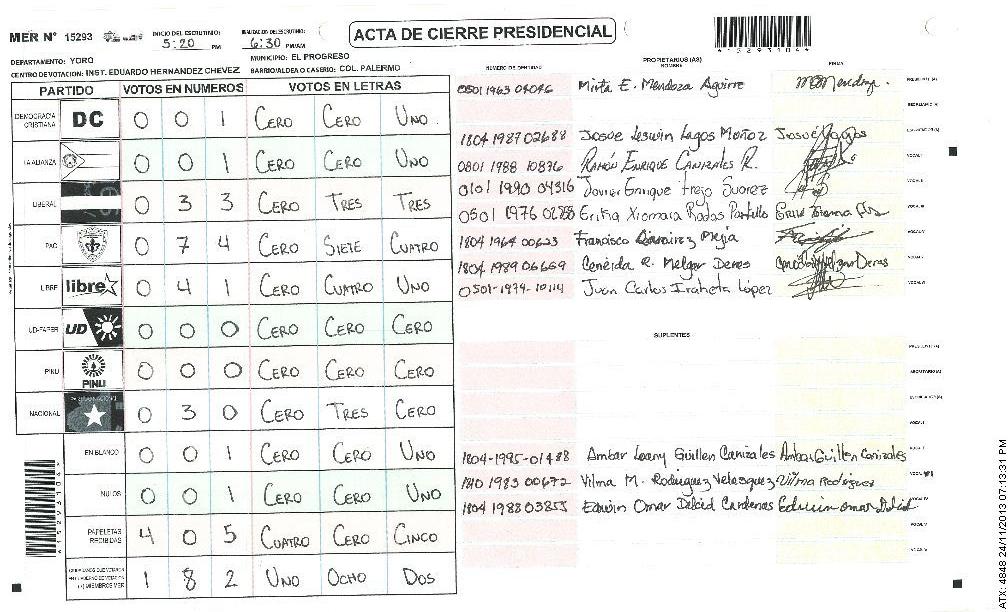 MER N° 15293
INICIO DEL ESCRUTINIO:
5:20 PM
6:30 PM/AM
ACTA DE CIERRE PRESIDENCIAL
DEPARTAMENTO: YORO
MUNICIPIO: EL PROGRESO
CENTRO DE VOTACION: INST. EDUARDO HERNANDEZ CHEVEZ
BARRIO/ALDEA O CASERIO: COL. PALERMO
PARTIDO VOTOS EN NUMEROS VOTOS EN LETRAS
DEMOCRACIA CRISTIANA DC 0 0 1 CERO CERO UNO
LA ALIANZA 0 0 1 CERO CERO UNO
LIBERAL 0 3 3 CERO TRES TRES
PAC 0 7 4 CERO SIETE CUATRO
LIBRE libre 0 4 1 CERO CUATRO UNO
UD-FAPER UD 0 0 0 CERO CERO CERO
PINU PINU 0 0 0 CERO CERO CERO
NACIONAL 0 3 0 CERO TRES CERO
EN BLANCO 0 0 1 CERO CERO UNO
NULOS 0 0 1 CERO CERO UNO
PAPELETAS RECIBIDAS 4 0 5 CUATRO CERO CINCO
1 8 2 UNO OCHO DOS
NUMERO DE IDENTIDAD
PROPIETARIOS (AS)
NOMBRE
FIRMA
0501 1963 04046 Mirta E. Mendoza Aguirre
1804 1987 02688 Josue Leswin Lagos Muñoz
0801 1988 10876 RAMÓN ENRIQUE CANIZALES R.
0101 1990 04316 Javier Enrique Trejo Suarez
0501 1976 02788 Erika Xiomara Rodas Portillo
1804 1964 00623 Francisco Ramirez Mejia
1804 1989 06669 Ceneida R. Melgar Deras
0501-1979-10114 Juan Carlos Iraheta López
SUPLENTES
1804-1995-01488 Ambar Leany Guillen Canizales Ambar Guillen Canizales
1983 00672 Vilma M. Rodriguez Velasquez Vilma Rodriguez
1804 1988 03855 Edwin Omar Delcid Cardenas Edwin omar Delcid
4152931044
ATX: 4848 24/11/2013 07:13:31 PM